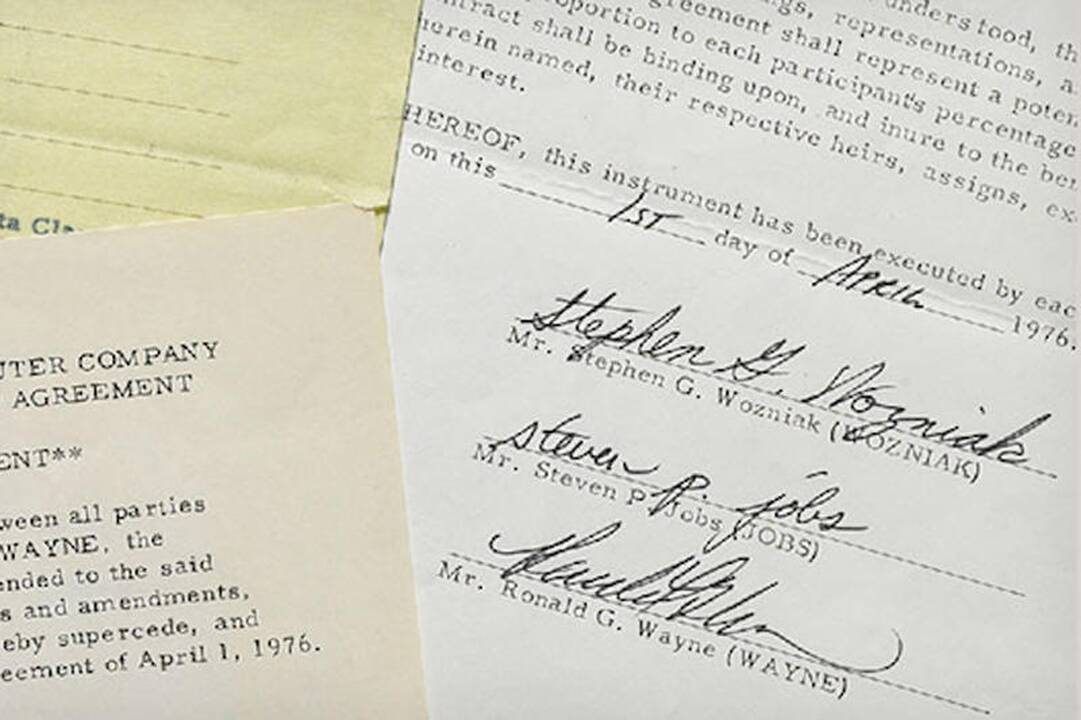 ta Cla
UTER COMPANY
AGREEMENT
ENT**
ween all parties
WAYNE, the
ended to the said
s and amendments,
eby supercede, and
eement of April 1, 1976.
ngs, representations, a
understood, th
greement shall represent a poten
oportion to each participant's percentage
ntract shall be binding upon, and inure to the ben
herein named, their respective heirs, assigns, ex
interest.
HEREOF, this instrument has been executed by eac
on this 1ST day of APRIL 1976.
Stephen G. Wozniak
Mr. Stephen G. Wozniak (WOZNIAK)
steven P. jobs
Mr. Steven P. Jobs (JOBS)
Mr. Ronald G. Wayne (WAYNE)